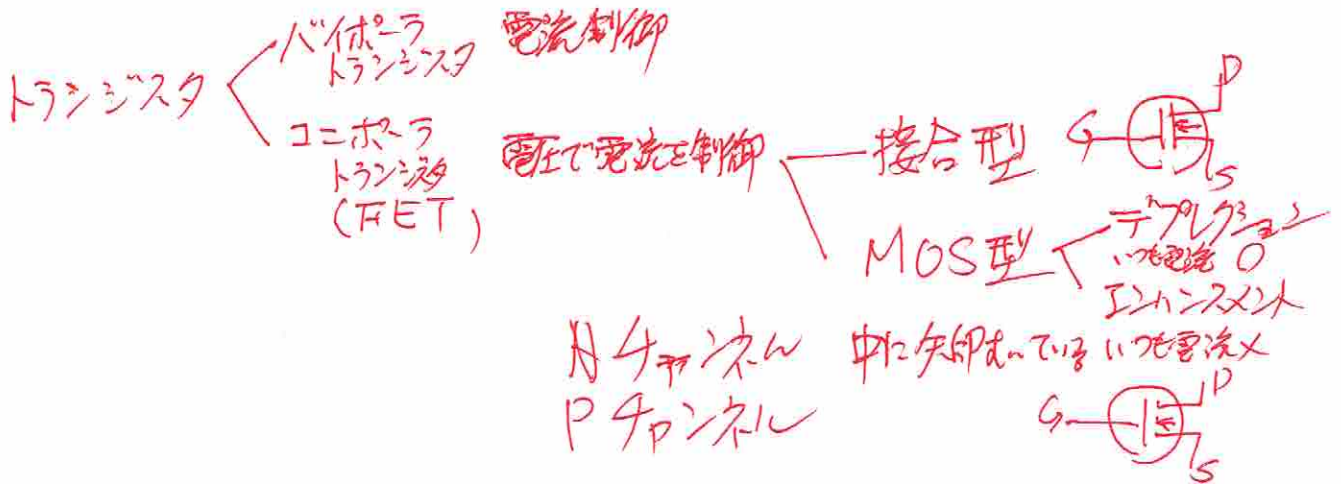 バイポーラ 電流制御
トランジスタ
トランジスタ
ユニポーラ
トランジスタ
(FET)
電圧で電流を制御
接合型
G D S
MOS型
デプレクション
いつも電流 ○
エンハンスメント
いつも電流×
Nチャンネル 中に矢印むいている
Pチャンネル
G D S